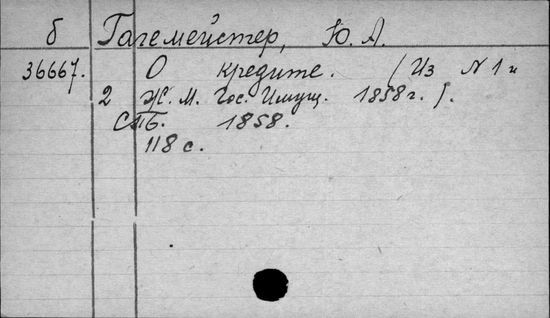 б Гагемейстер, Ю. А.
36667. О кредите. (Из N 1 и
2 Ж. М. Гос. Имущ. 1858 г.).
СПБ. 1858.
118 с.